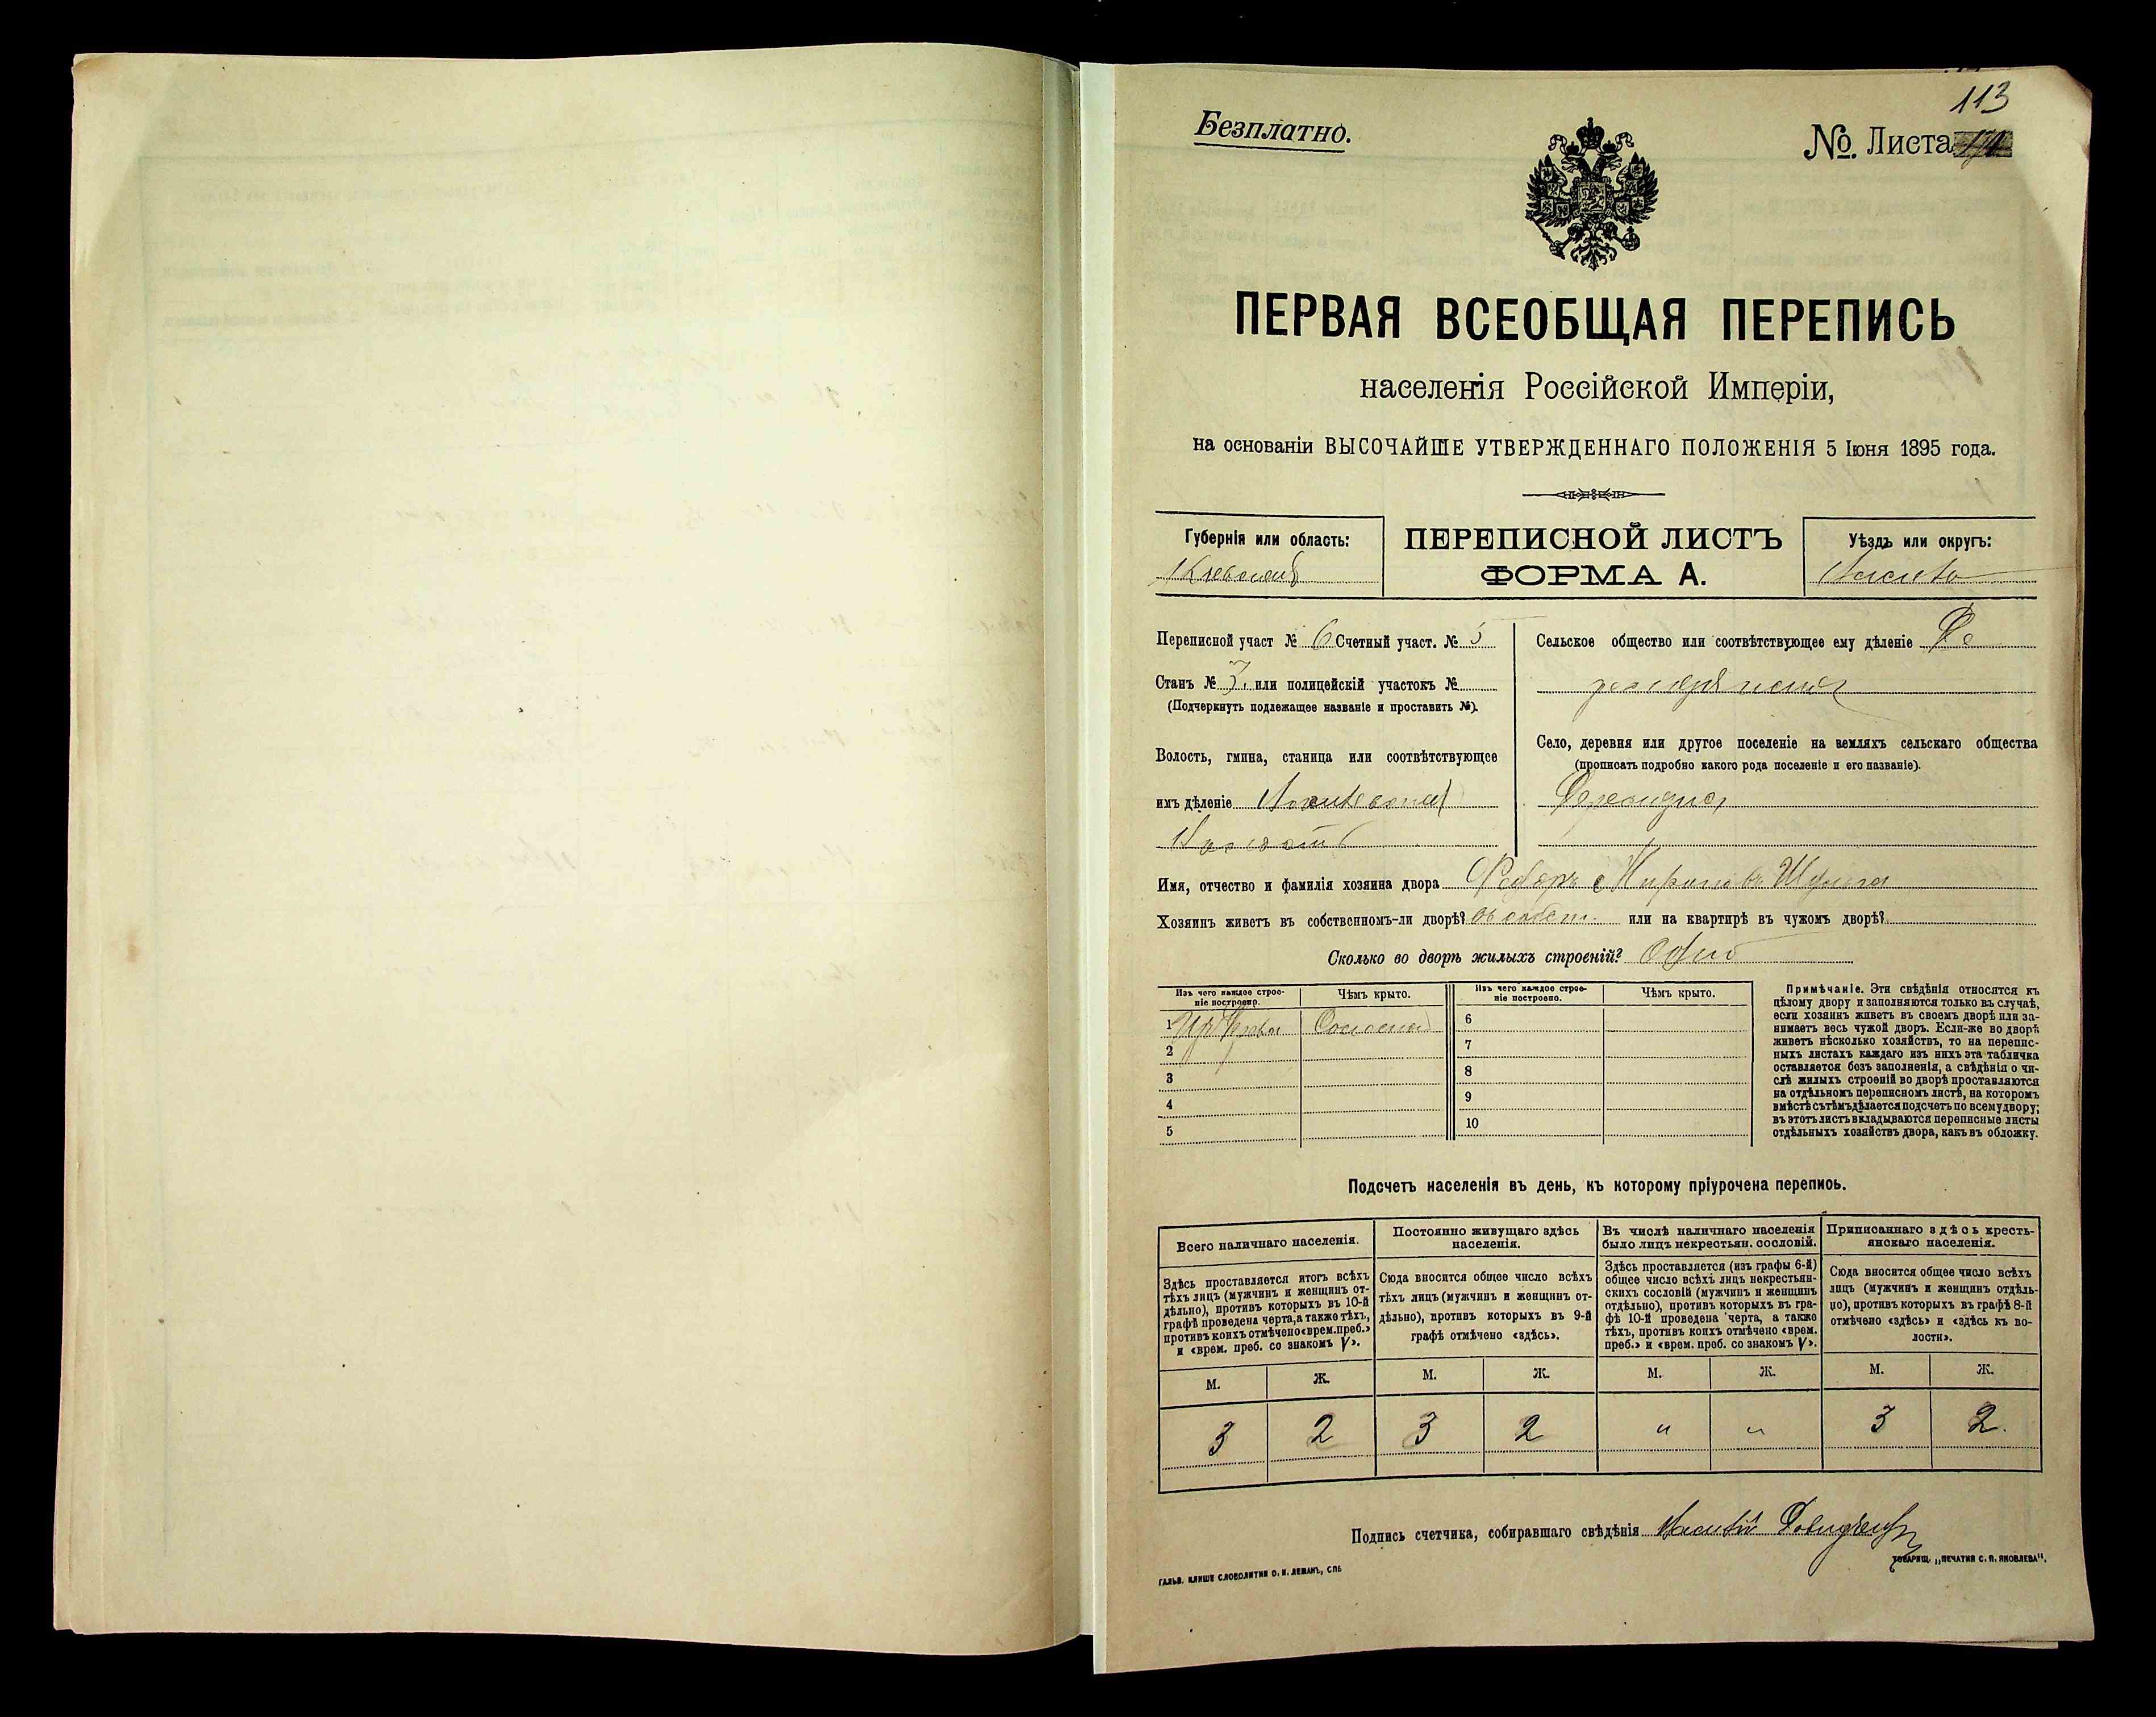 113
Безплатно.
№ Листа
ПЕРВАЯ ВСЕОБЩАЯ ПЕРЕПИСЬ
населенія Россійской Имперіи,
на основаніи ВЫСОЧАЙШЕ УТВЕРЖДЕННАГО ПОЛОЖЕНІЯ 5 Іюня 1895 года.
Губернія или область:
ПЕРЕПИСНОЙ ЛИСТЪ
ФОРМА А.
Уѣздъ или округъ:
Переписной участ № 6 Счетный участ. № 5
Станъ № 3, или полицейскій участокъ №
(Подчеркнуть подлежащее названіе и проставить №).
Волость, гмина, станица или соотвѣтствующее
имъ дѣленіе
Сельское общество или соотвѣтствующее ему дѣленіе
Село, деревня или другое поселеніе на земляхъ сельскаго общества
(прописать подробно какого рода поселеніе и его названіе).
Имя, отчество и фамилія хозяина двора Федоръ
Хозяинъ живетъ въ собственномъ-ли дворѣ? или на квартирѣ въ чужомъ дворѣ?
Сколько во дворѣ жилыхъ строеній? Одно
Изъ чего каждое строе-
ніе построено.
Чѣмъ крыто.
Изъ чего каждое строе-
ніе построено.
Чѣмъ крыто.
1 Изъ дерева Соломой
2
3
4
5
6
7
8
9
10
Примѣчаніе. Эти свѣдѣнія относятся къ
цѣлому двору и заполняются только въ случаѣ,
если хозяинъ живетъ въ своемъ дворѣ или за-
нимаетъ весь чужой дворъ. Если-же во дворѣ
живетъ нѣсколько хозяйствъ, то на перепис-
ныхъ листахъ каждаго изъ нихъ эта табличка
оставляется безъ заполненія, а свѣдѣнія о чи-
слѣ жилыхъ строеній во дворѣ проставляются
на отдѣльномъ переписномъ листѣ, на которомъ
вмѣстѣ съ тѣмъ дѣлается подсчетъ по всему двору;
въ этотъ листъ вкладываются переписные листы
отдѣльныхъ хозяйствъ двора, какъ въ обложку.
Подсчетъ населенія въ день, къ которому пріурочена перепись.
Всего наличнаго населенія.
Здѣсь проставляется итогъ всѣхъ
тѣхъ лицъ (мужчинъ и женщинъ от-
дѣльно), противъ которыхъ въ 10-й
графѣ проведена черта, а также тѣхъ,
противъ коихъ отмѣчено «врем. преб.»
и «врем. преб. со знакомъ V».
Постоянно живущаго здѣсь
населенія.
Сюда вносится общее число всѣхъ
тѣхъ лицъ (мужчинъ и женщинъ от-
дѣльно), противъ которыхъ въ 9-й
графѣ отмѣчено «здѣсь».
Въ числѣ наличнаго населенія
было лицъ некрестьян. сословій.
Здѣсь проставляется (изъ графы 6-й)
общее число всѣхъ лицъ некрестьян-
скихъ сословій (мужчинъ и женщинъ
отдѣльно), противъ которыхъ въ гра-
фѣ 10-й проведена черта, а также
тѣхъ, противъ коихъ отмѣчено «врем.
преб.» и «врем. преб. со знакомъ V».
Приписаннаго здѣсь кресть-
янскаго населенія.
Сюда вносится общее число всѣхъ
лицъ (мужчинъ и женщинъ отдѣль-
но), противъ которыхъ въ графѣ 8-й
отмѣчено «здѣсь» и «здѣсь къ во-
лости».
М. Ж. М. Ж. М. Ж. М. Ж.
3 2 3 2 " " 3 2.
Подпись счетчика, собиравшаго свѣдѣнія
ТОВАРИЩ. „ПЕЧАТНЯ С. П. ЯКОВЛЕВА".
ГАЛЬВ. КЛИШЕ СЛОВОЛИТНИ О. И. ЛЕМАНЪ, СПБ.